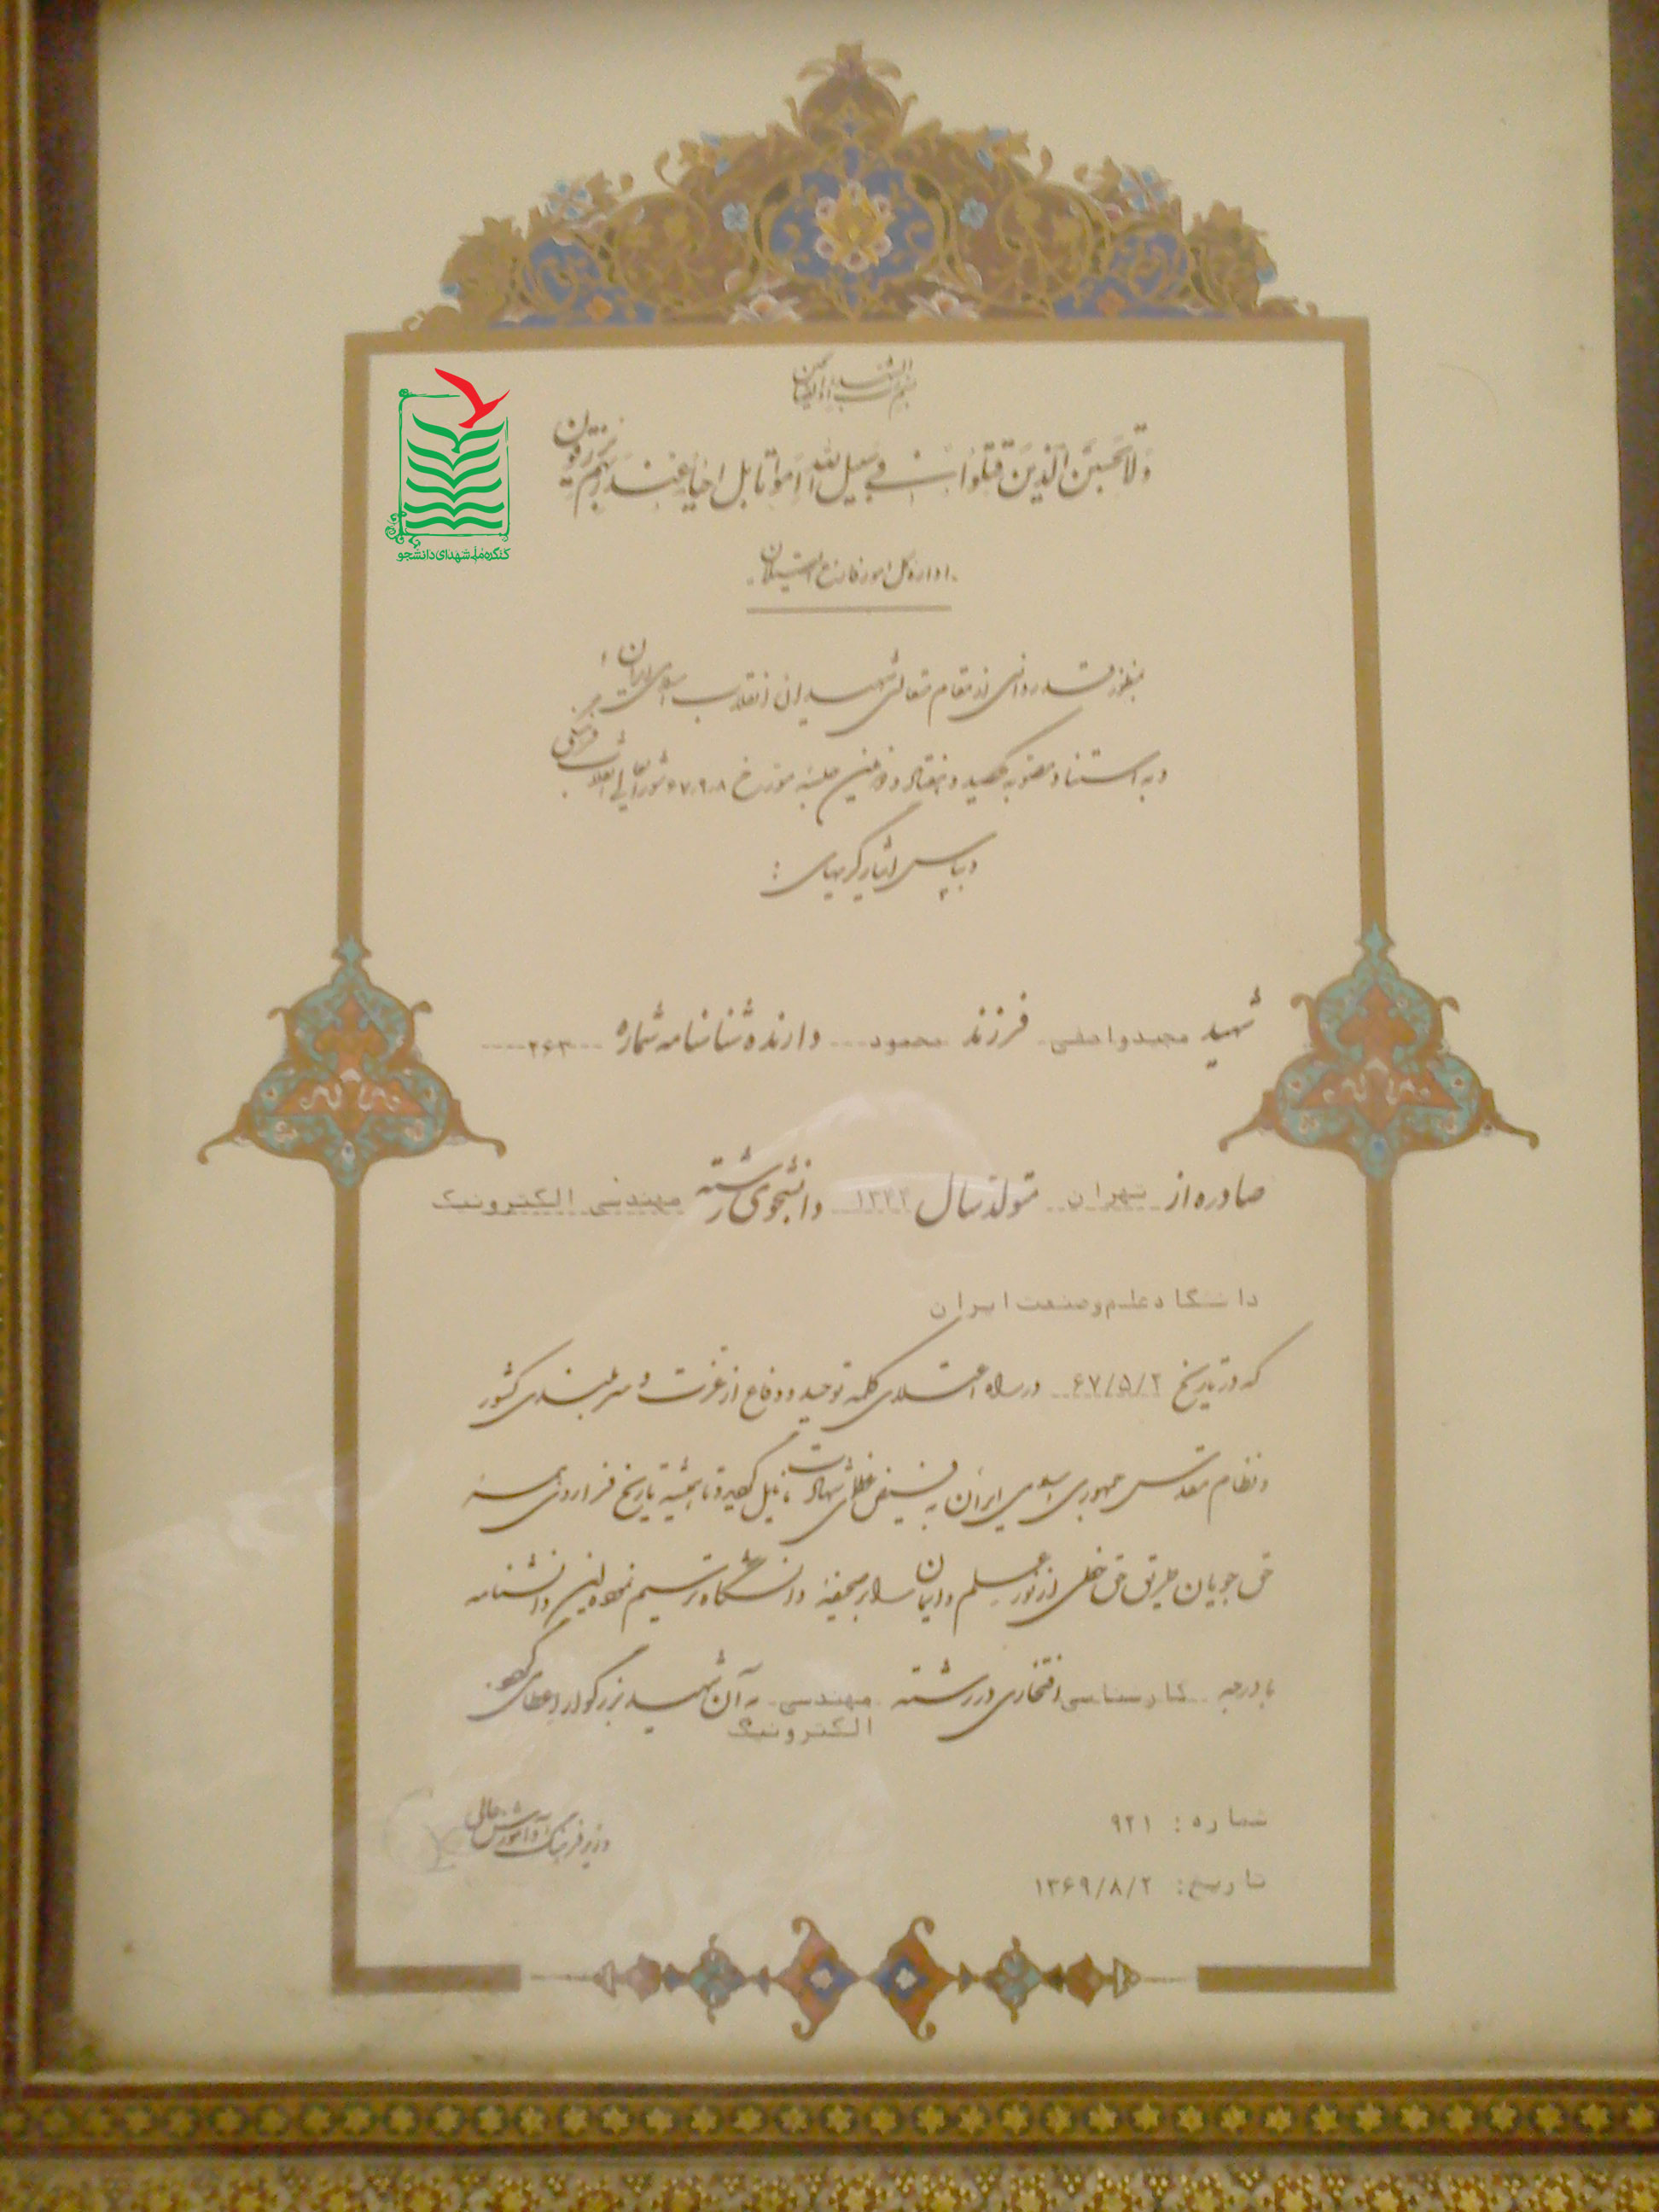 بسم رب الشهداء والصدیقین
وَلا تَحْسَبَنَّ الَّذینَ قُتِلوُا فی سَبیلِ اللهِ اَمْواتا بَل اَحیاءٌ عِندَ رَبِّهِم یُرزَقُون
کنگره ملی شهدای دانشجو
اداره کل امور فارغ التحصیلان
بمنظور قدردانی از مقام متعالی شهیدان انقلاب اسلامی ایران
و به استناد مصوبه یکصد و هفتاد و دومین جلسه مورخ ۶۷،۹،۸ شورایعالی انقلاب فرهنگی
و بپاس ایثارگریهای :
شهید مجید واصلی فرزند محمود دارنده شناسنامه شماره ۲۶۳
صادره از تهران متولد سال ۱۳۴۴ دانشجوی رشته مهندسی الکترونیک
دانشگاه علم و صنعت ایران
که در تاریخ ۶۷/۵/۲ در راه اعتلای کلمه توحید و دفاع از عزت و سربلندی کشور
و نظام مقدس جمهوری اسلامی ایران به فیض عظمای شهادت نایل گردید و تا همیشه تاریخ فراروی همه
حق جویان طریق حق خطی از نور علم و ایمان را بر صحیفه دانشگاه ترسیم نمود این دانشنامه
با درجه کارشناسی افتخاری در رشته مهندسی الکترونیک به آن شهید بزرگوار اعطا می گردد.
وزیر فرهنگ و آموزش عالی
شماره : ۹۲۱
تاریخ : ۱۳۶۹/۸/۲